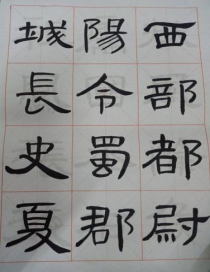 西部都尉
陽令蜀郡
城長史夏